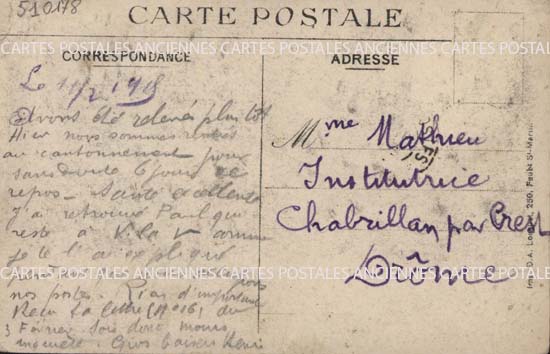 510178
CARTE POSTALE
CARTES POSTALES ANCIENNES CARTES POSTALES ANCIENNES CARTES POSTALES
CORRESPONDANCE
ADRESSE
Le 11/2 1915
Avons été relevés plus tôt
Hier nous sommes rentrés
au cantonnement pour
sans doute 6 jours de
repos. Santé excellente
J'ai retrouvé Paul qui
reste à V.la V comme
je te l'ai expliqué
nos postes. Rien d'important
Reçu ta lettre (N°16) du
3 Février. Sois donc moins
inquiète. Gros baisers Henri
Mme Mathieu
Institutrice
Chabrillan par Crest
Drôme
CARTES POSTALES ANCIENNES CARTES POSTALES ANCIENNES CARTES POSTALES
Imp. D.A. 250, Faubg St-Martin